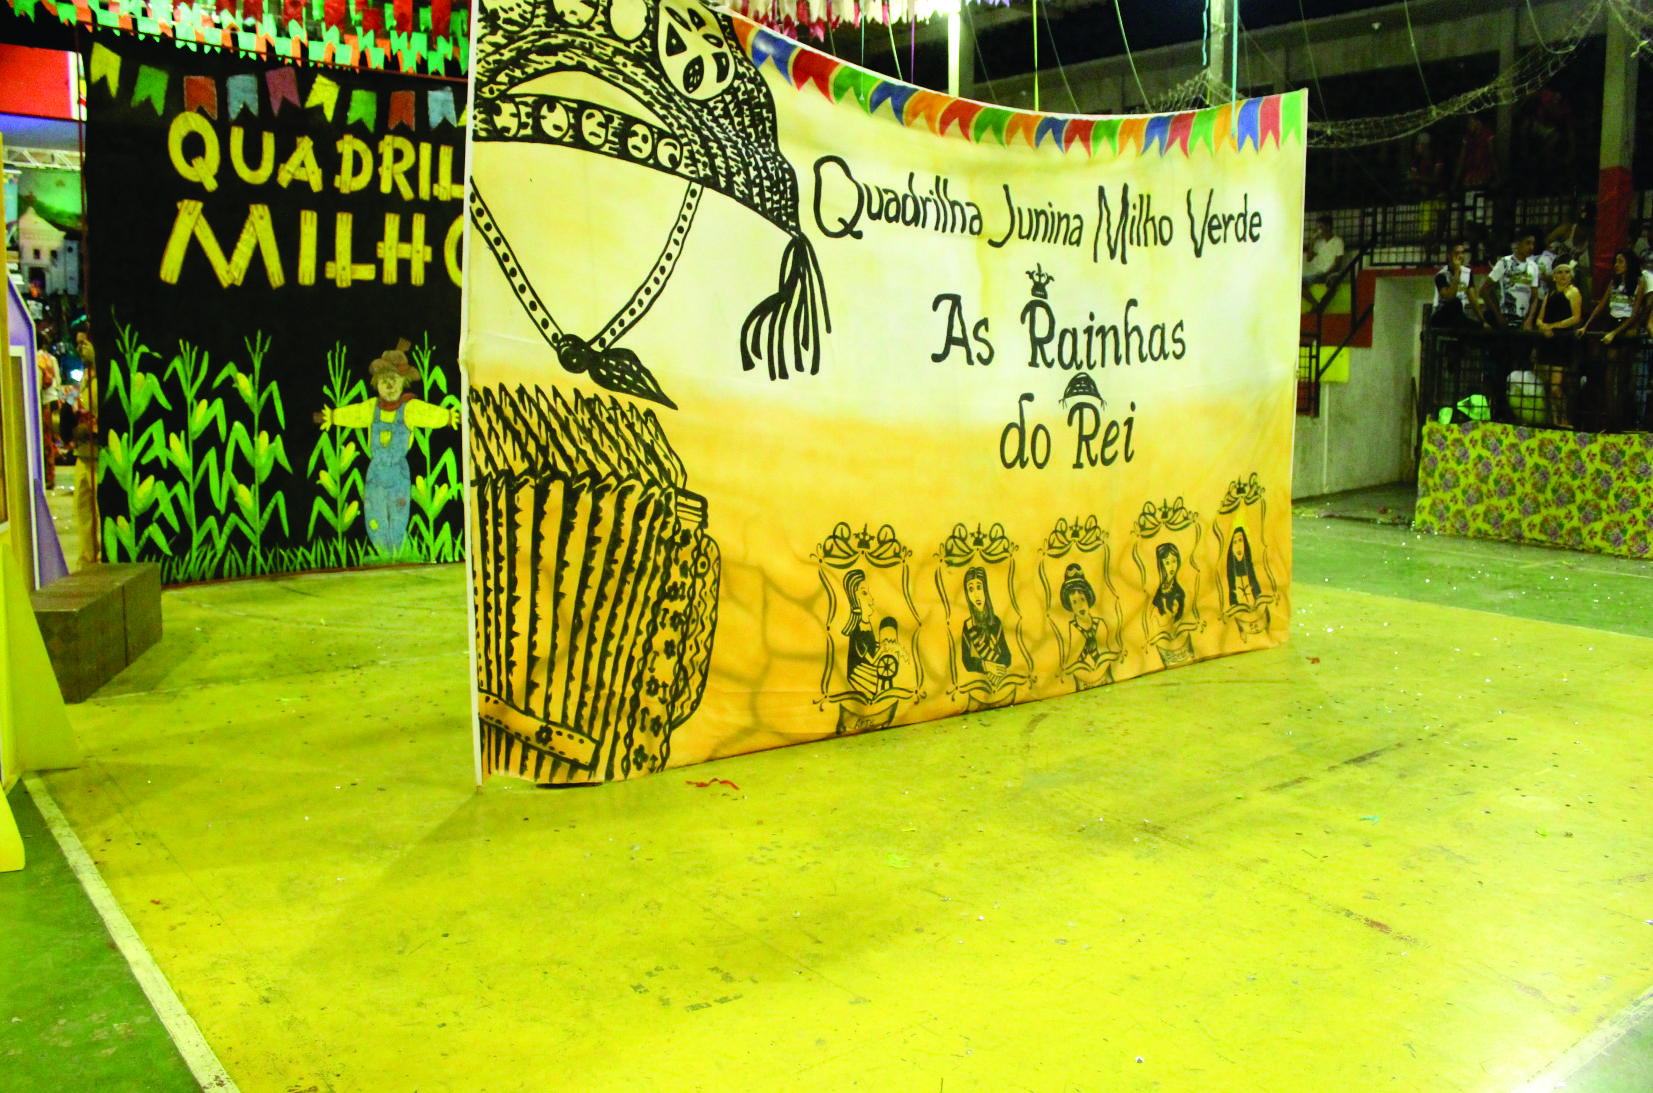 QUADRIL
MILHO
Quadrilha Junina Milho Verde
As Rainhas
do Rei